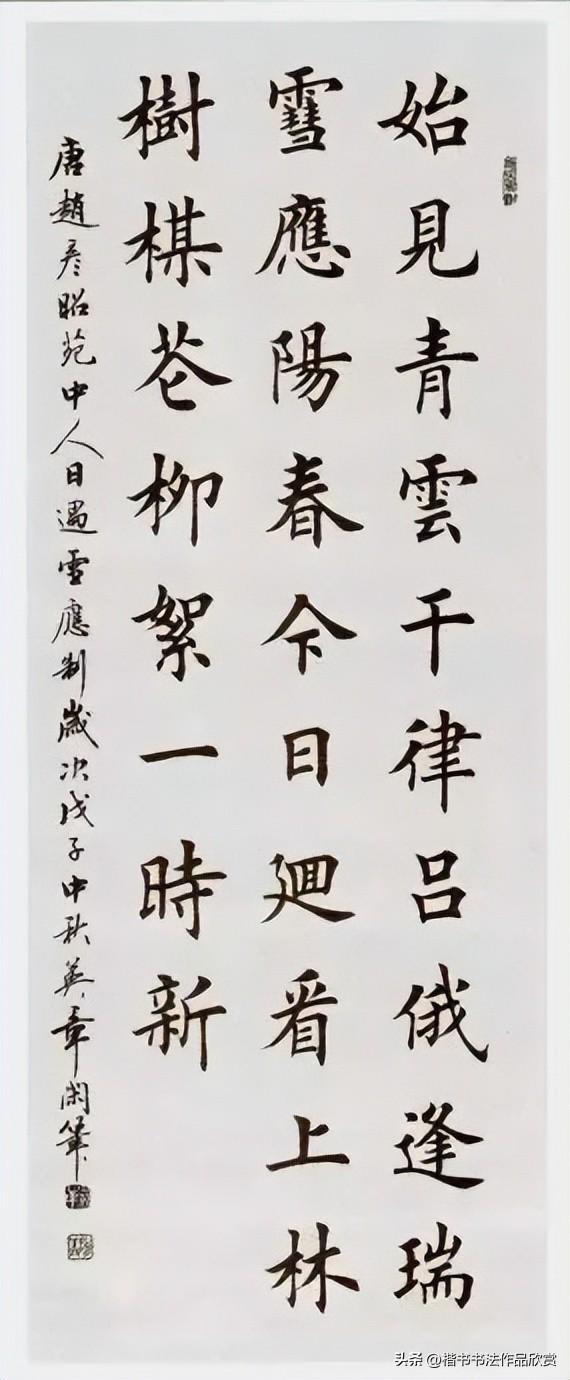 始見青雲干律呂俄逢瑞
雪應陽春今日廻看上林
樹楳花柳絮一時新
唐趙彥昭苑中人日遇雪應制歲次戊子中秋英章閑筆
头条 @楷书书法作品欣赏